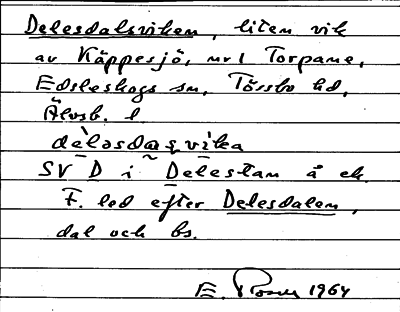 Delesdalsviken, liten vik
av Käppesjö, nr 1 Torpane,
Edsleskogs sn, Tössbo hd,
Älvsb. l.
dèləsdasvika
SV D i Delestam å ek.
F. led efter Delesdalen,
dal och bs.
E. 1964